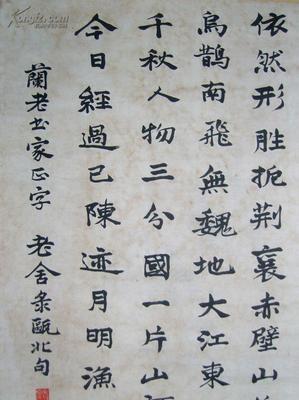 依然形胜扼荆襄赤壁山
烏鵲南飛無魏地大江東
千秋人物三分國一片山
今日經過已陳迹月明漁
蘭老书家正字 老舍录甌北句